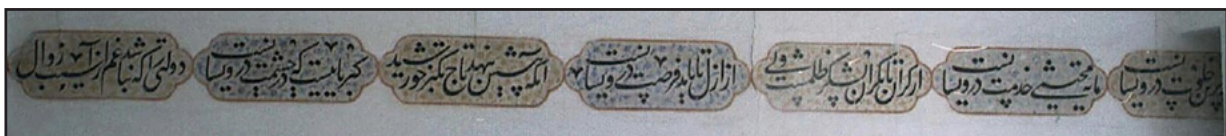 برین خلوت درویشانست
مایه محتشمی خدمت درویشانست
از کران تا بکران لشکر ظلمست ولی
از ازل تا بابد فرصت درویشانست
آنکه پیشش بنهد تاج تکبر خورشید
کبریاییست که در حشمت درویشانست
دولتی را که نباشد غم از آسیب زوال